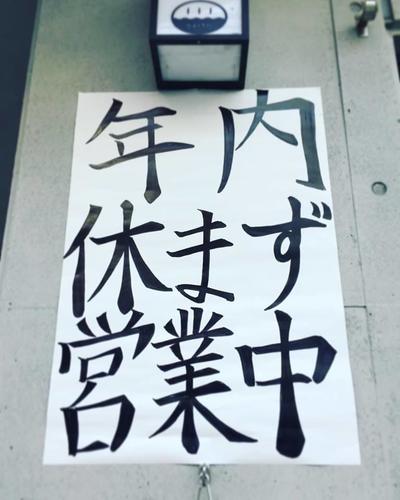 年内
休まず
営業中